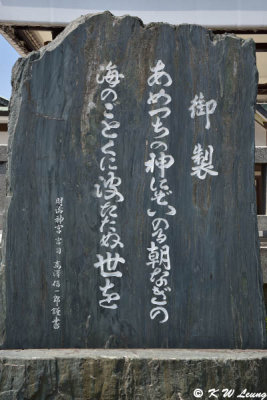 御製
あめつちの神にぞいのる朝なぎの
海のごとくに波たたぬ世を
明治神宮宮司 高澤信一郎謹書
© K W Leung